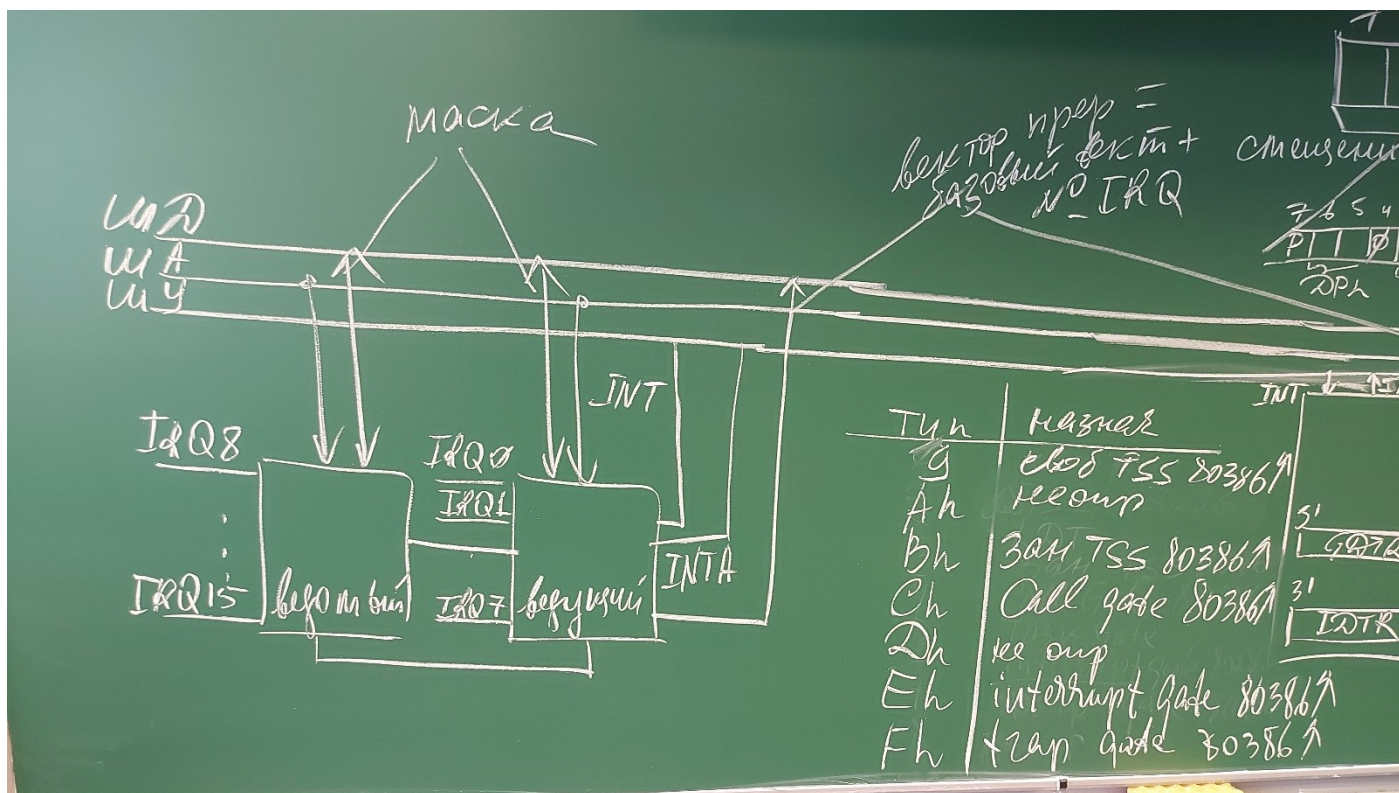 маска
вектор прер =
базовый вект +
№ IRQ
смещени
7 6 5 4
P
DPL
ШД
ША
ШУ
INT
INT
IRQ8
IRQ15
ведомый
IRQ0
IRQ1
IRQ7
ведущий
INTA
Тип | назнач
9 | своб TSS 80386↑
Ah | не опр
Bh | зан TSS 80386↑
Ch | Call gate 80386↑
Dh | не опр
Eh | interrupt gate 80386↑
Fh | trap gate 80386↑
3'
3'
IDTR